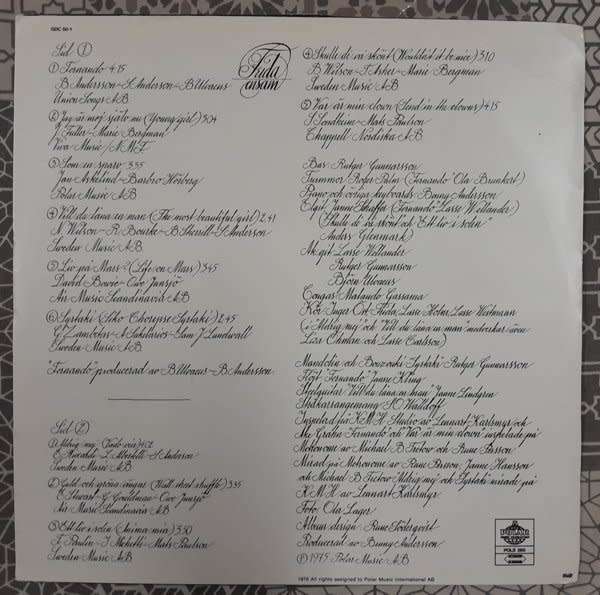 GDC 50-1
Sid 1
Frida
ensam
① Fernando 4.15
B Andersson-S Anderson-B Ulvaeus
Union Songs AB
② Jag är mej själv nu (Young girl) 3.04
J Fuller-Marie Bergman
Viva Music/NMF
③ Som en sparv 3.35
Jan Askelind-Barbro Hörberg
Polar Music AB
④ Vill du låna en man (The most beautiful girl) 2.41
N Wilson-R Bourke-B Sherrill-S Anderson
Sweden Music AB
⑤ Liv på Mars? (Life on Mars) 3.45
David Bowie-Owe Junsjö
Air Music Scandinavia AB
⑥ Syrtaki (Siko Chorepse Syrtaki) 2.45
G Zambetas-A Sakelarios-Sam J Lundwall
Sweden Music AB
"Fernando" producerad av B Ulvaeus-B Andersson
Sid 2
① Aldrig mej (Vado via) 4.02
E Riccardi-L Albertelli-S Anderson
Sweden Music AB
② Guld och gröna ängar (Wall street shuffle) 3.35
E Stewart-G Gouldman-Owe Junsjö
Air Music Scandinavia AB
③ Ett liv i solen (Anima mia) 3.50
F Paulin-I Michetti-Mats Paulson
Sweden Music AB
④ Skulle de va skönt (Wouldn't it be nice) 3.10
B Wilson-T Asher-Marie Bergman
Sweden Music AB
⑤ Var är min clown (Send in the clowns) 4.15
S Sondheim-Mats Paulson
Chappell Nordiska AB
Bas: Rutger Gunnarsson
Trummor: Roger Palm ("Fernando" Ola Brunkert)
Piano och övriga keyboards Benny Andersson
Elgit: Janne Schaffer ("Fernando" Lasse Wellander)
("Skulle de va skönt" och "Ett liv i solen"
Anders Glenmark)
Ak git: Lasse Wellander
Rutger Gunnarsson
Björn Ulvaeus
Congas: Malando Gassama
Kör: Inger Frida, Lasse Holm, Lasse Westmann
(i "Aldrig mej" och "Vill du låna en man" medverkar även
Liza Öhman och Lasse Carlsson)
Mandolin och Bouzouki "Syrtaki" Rutger Gunnarsson
Flöjt "Fernando" Janne Kling
Steelguitar "Vill du låna en man" Janne Lindgren
Stråkarrangemang S O Walldoff
Inspelad på KMH Studio av Lennart Karlsmyr och
Åke Grahn "Fernando" och "Var är min clown" inspelade på
Metronome av Michael B Tretow och Rune Persson
Mixad på Metronome av Rune Persson, Janne Hansson
och Michael B Tretow "Aldrig mej" och "Syrtaki" mixade på
KMH av Lennart Karlsmyr
Foto: Ola Lager
Album design: Rune Söderqvist
Producerad av Benny Andersson
℗ 1975 Polar Music AB
1976 All rights assigned to Polar Music International AB
POLAR
POLS 265